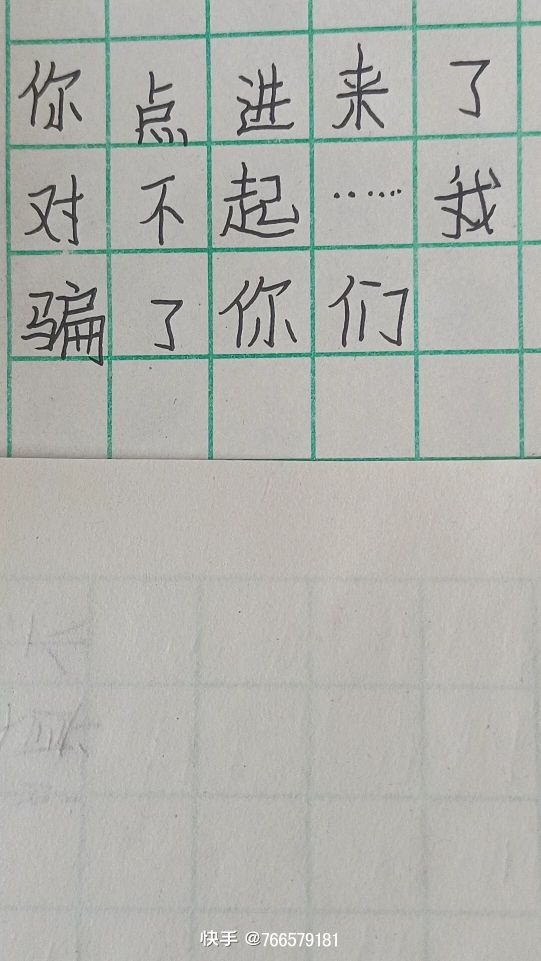 你点进来了
对不起……我
骗了你们
快手 @766579181